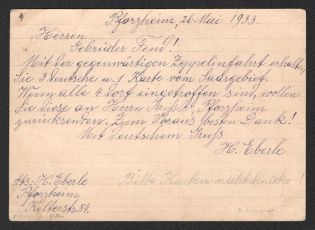 Pforzheim, 26 Mai 1933.
Herren
Gebrüder Fend!
Mit der gegenwärtigen Zeppelinfahrt erhalten
Sie 3 deutsche u. 1 Karte vom Saargebiet.
Wenn alle 4 dort eingetroffen sind, wollen
Sie diese an Herrn Pforzheim
zurücksenden. Zum Voraus besten Dank!
Mit deutschem Gruß
H. Eberle
Abs: H. Eberle
Pforzheim
Bitte Karten nicht knicken!